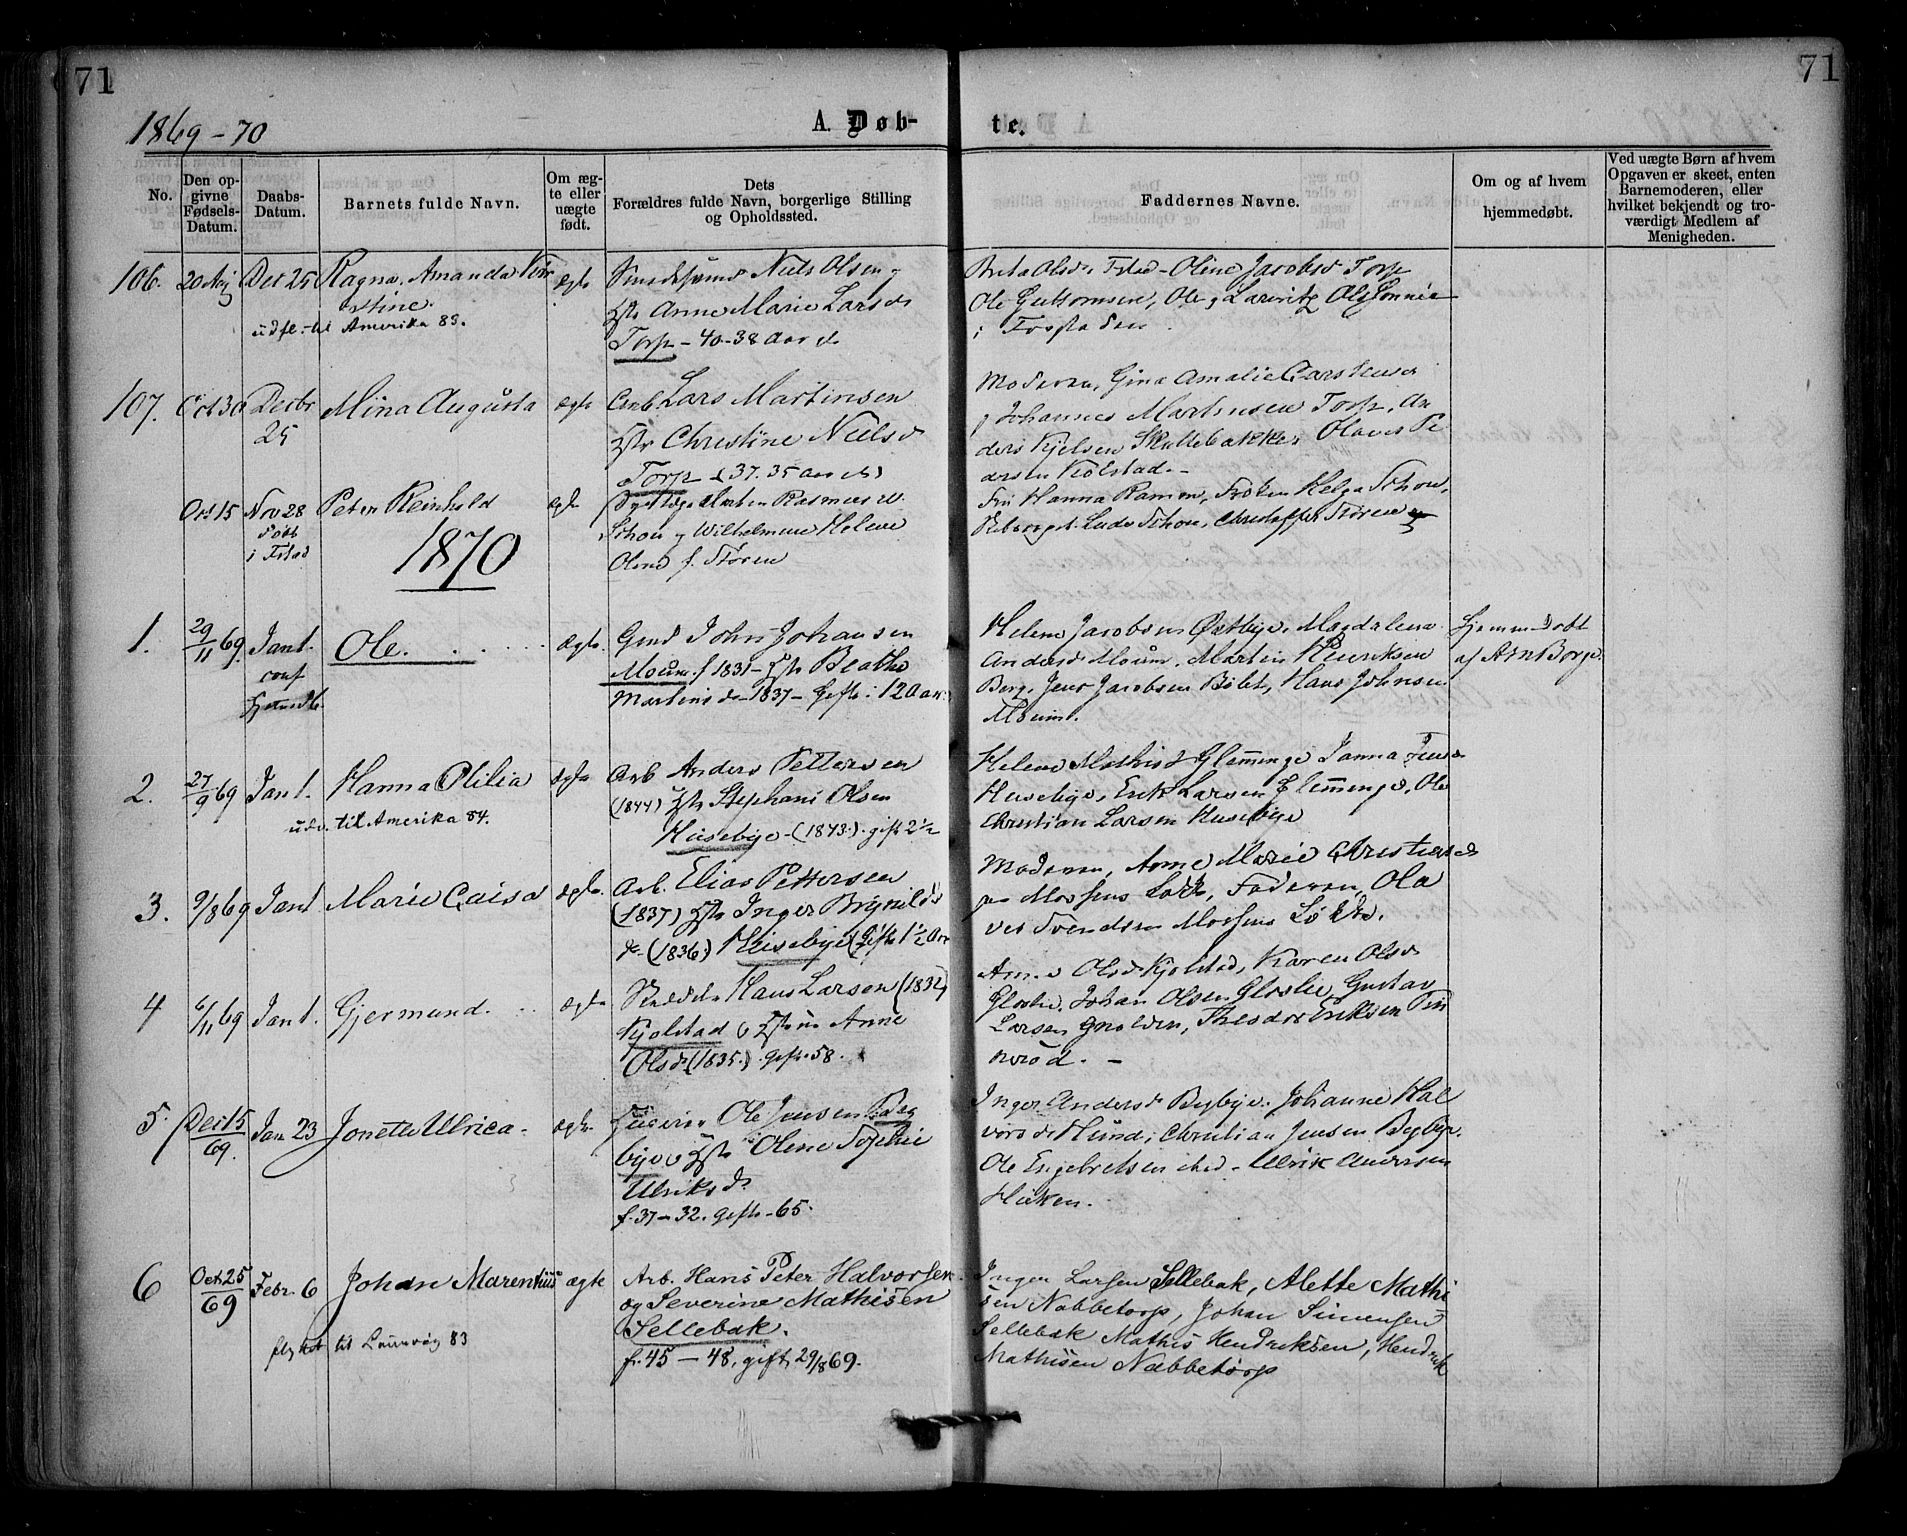 71
71
1869-70
A. Døb-
te.
No.
Den op-
givne
Fødsels-
Datum.
Daabs-
Datum.
Barnets fulde Navn.
Om æg-
te eller
uægte
født.
Dets
Forældres fulde Navn, borgerlige Stilling
og Opholdssted.
Faddernes Navne.
Om og af hvem
hjemmedøbt.
Ved uægte Børn af hvem
Opgaven er skeet, enten
Barnemoderen, eller
hvilket bekjendt og tro-
værdigt Medlem af
Menigheden.
106.
Dec 25
Ragna Amanda
stine.
udfl. til Amerika 83.
ægte
Niels Olsen
Anne Marie Larsd
Torp - 40-38 Aar
Olsd Fstad - Oline Jacobsd Torp
Ole Guttormsen, Ole
i Frstaden
107.
Oct 30
Decbr
25
Mina Augusta
ægte
Arb Lars Martinsen
Christine Nielsd
Torp (37. 35 aar)
Moderen, Gina Amalie Carstensd
Johannes Martinsen Torp, An
ders Kjelsen Skallebakke, Olaves Pe
dersen Kiølstad.
Oct 15
Nov 28
Døbt
i Fstad
Peter Reinhold
ægte
Morten Rasmus
Schou og Wilhelmine Helene
Olene f. Støren
Hanna Ramm, Frøken Helga Schou,
Ludv Schou, Christoffer Støren
1870
1.
29/11 69.
Jan 1.
conf
Hjemdb.
Ole.
ægte.
Gmd Johs Johansen
Moum f 1831 - Beathe
Martinsd 1837 - gift i 12 Aar.
Helene Jacobsen Østbye, Magdalena
Andersd Moum, Martin Henriksen
Berg, Jens Jacobsen Bølet, Hans Johnsen
Moum.
Hjemmedøbt
af Borge.
2.
27/9 69
Jan 1.
Hanna Otilia
udv. til Amerika 84.
ægte
Arb Anders Pettersen
(1844) Stephani Olsen
Husebye - (1843). gift 2 1/2
Helene Mathisd Glemminge Janna
Husebye, Erik Larsen Glemminge, Ole
Christian Larsen Husebye
3.
9/8 69
Jan 1
Marie Caisa
ægte.
Arb. Elias Pettersen
(1837) Inger Brynilds
d. (1836) Husebye (Gift 1 1/2 Aar
Moderen, Anne Marie Christiansd
Mossens Løkke, Faderen, Ola
ves Svendsen Mossens Løkke.
4
6/11 69
Jan 1.
Gjermund.
ægte
Hans Larsen (1832)
Kjølstad Anne
Olsd (1835.) gift 58.
Olsd Kjølstad, Karen Olsd
Glosli, Johan Olsen Glosli, Gustav
Larsen Theodor Eriksen
5.
Dec 15
69.
Jan 23
Jonette Ulrica.
ægte.
Ole Jensen Beg
bye Olene Sophie
Ulriksd
f. 37-32. gift - 65.
Inger Andersd Begbye. Johanne Hal
vorsd Hund, Christian Jensen Begbye.
Ole Engebretsen ibed - Ulrik Andersen
Haken.
6
Oct 25
69
Febr. 6
Johan Marentius
flyttet til Laurvig 83
ægte
Arb. Hans Peter Halvorsen
og Severine Mathisen
Sellebak.
f. 45 - 48, gift 29/8 69.
Inger Larsen Sellebak, Alette Mathi
sen Nabbetorp, Johan Simensen
Sellebak Mathis Hendriksen, Hendrik
Mathisen Nabbetorp